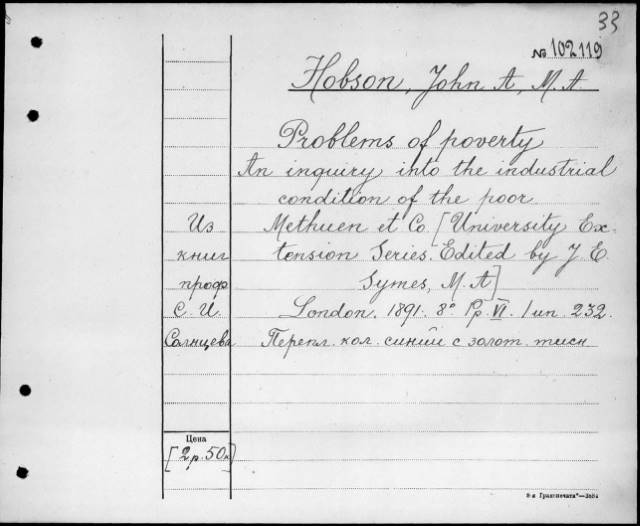 33
№ 102119
Hobson, John A, M.A.
Problems of poverty
An inquiry into the industrial
condition of the poor
Из Methuen et Co. [University Ex-
книг tension Series. Edited by J. E.
проф Symes, M.A]
С. И. London. 1891. 8° Pp. VI. 1 un. 232.
Солнцева Перепл. кол. синий с золот. тисн
Цена
[2 р. 50к]